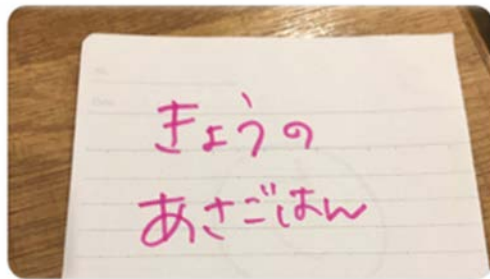 きょうの
あさごはん